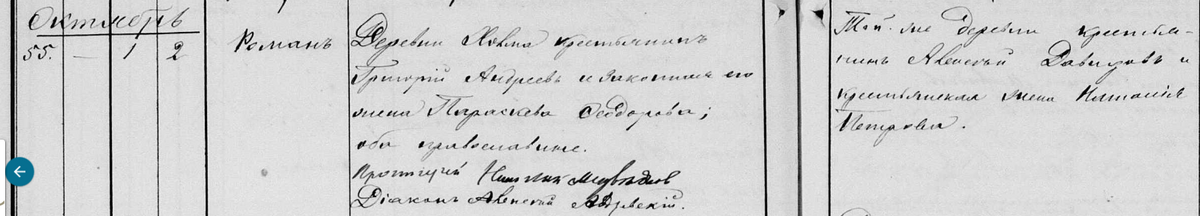 Октябрь
55. — 1 2 Романъ
Деревни Холма крестьянинъ
Григорій Андреевъ и законная его
жена Параскева Ѳеодорова;
оба православные.
Протоіерей Медвѣдковъ
Діаконъ Алексѣй
Той же деревни крестья-
нинъ Алексѣй Давидовъ и
крестьянская жена Наталія
Петрова.